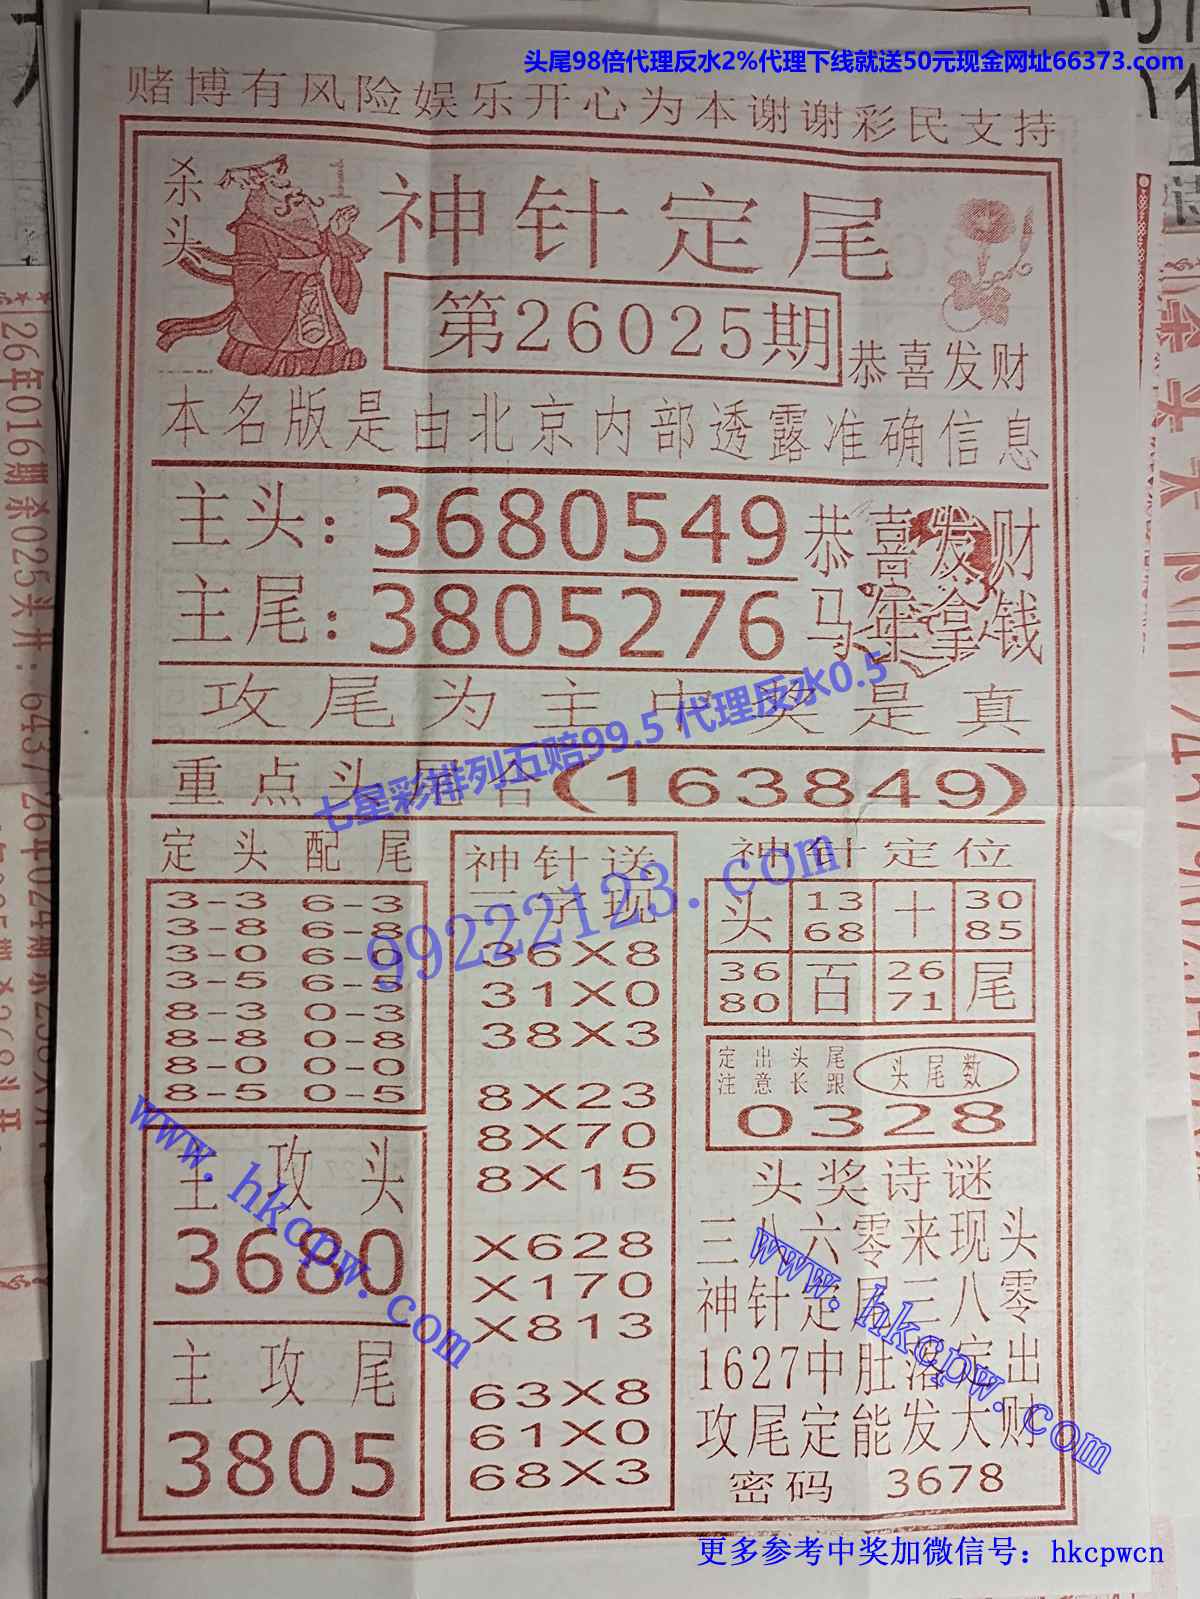 头尾98倍代理反水2%代理下线就送50元现金网址66373.com
赌博有风险娱乐开心为本谢谢彩民支持
杀头
1
神针定尾
第26025期
恭喜发财
本名版是由北京内部透露准确信息
主头：3680549 恭喜发财
主尾：3805276 马年拿钱
攻尾为主中奖是真
七星彩排列五赔99.5 代理反水0.5
重点头尾合(163849)
定头配尾
3-3 6-3
3-8 6-8
3-0 6-0
3-5 6-5
8-3 0-3
8-8 0-8
8-0 0-0
8-5 0-5
主攻头
3680
主攻尾
3805
神针送
三字现
36X8
31X0
38X3
8X23
8X70
8X15
X628
X170
X813
63X8
61X0
68X3
99222123.com
神针定位
头 13 十 30
68 85
36 百 26 尾
80 71
定出头尾
注意长跟
头尾数
0328
头奖诗谜
三八六零来现头
神针定尾三八零
1627中肚落定出
攻尾定能发大财
密码 3678
www.hkcpw.com
www.hkcpw.com
更多参考中奖加微信号：hkcpwcn
26年016期杀025头开：6437